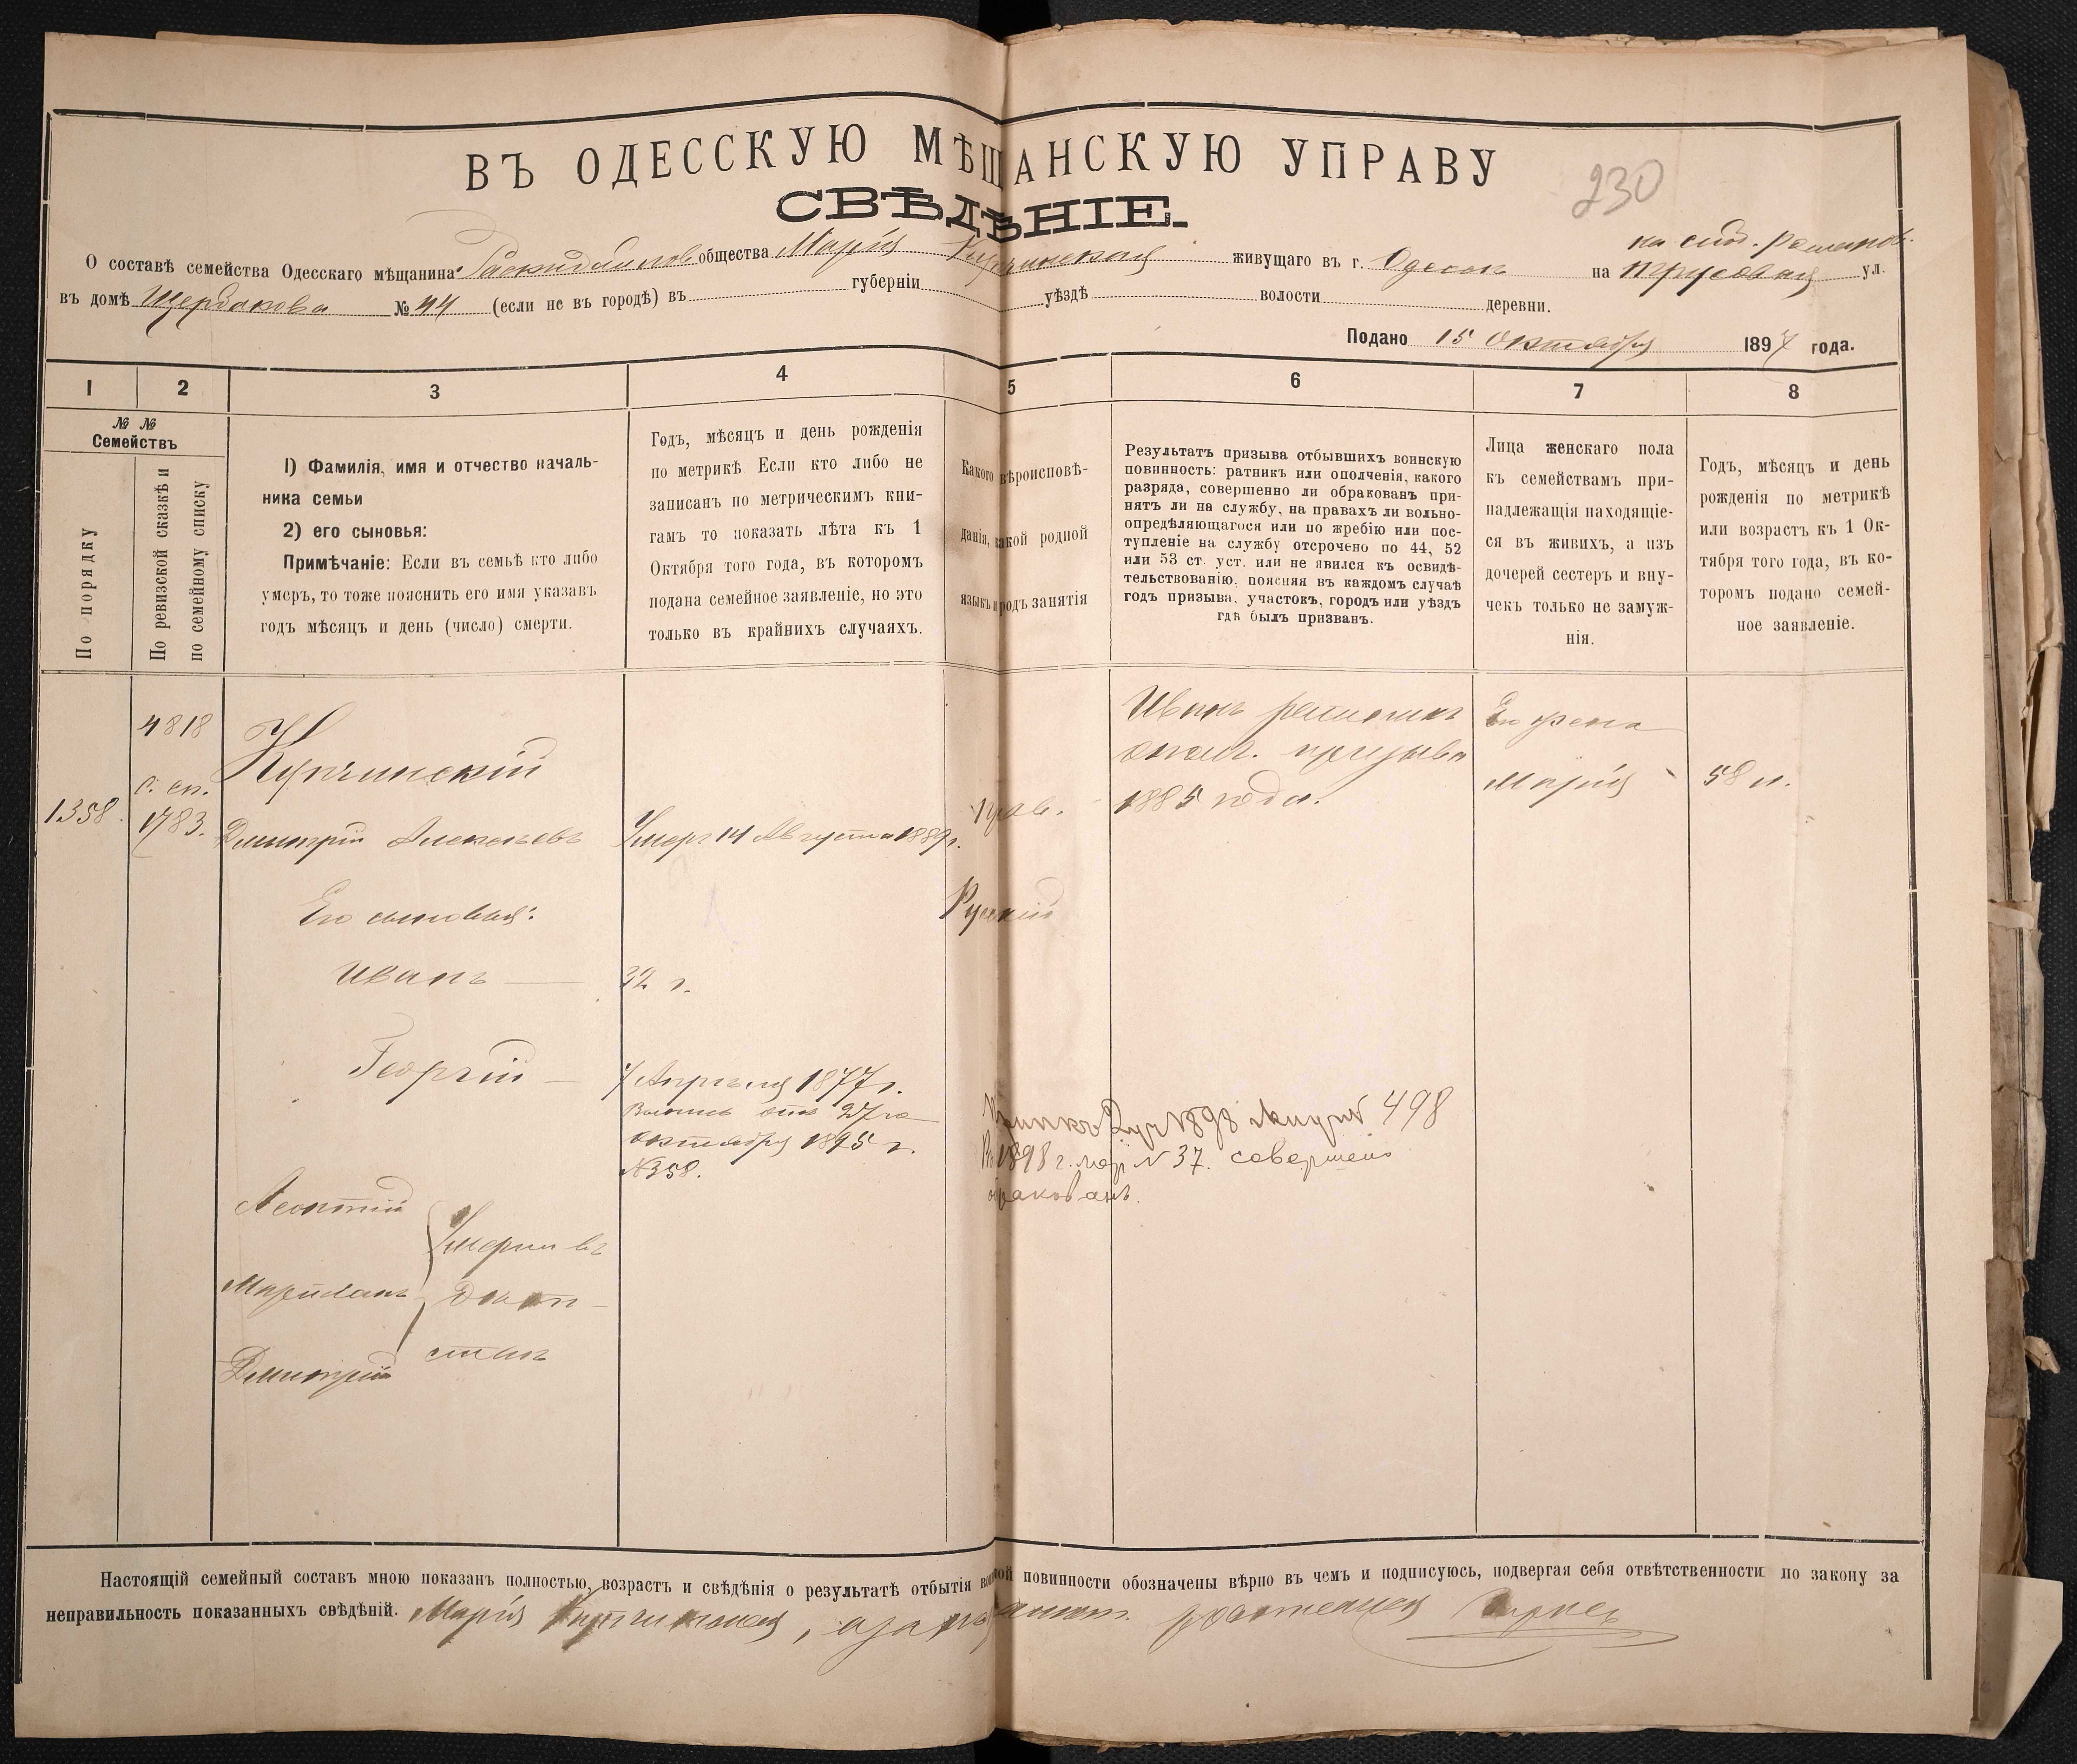 ВЪ ОДЕССКУЮ МѢЩАНСКУЮ УПРАВУ
230
СВѢДѢНІЕ.
О составѣ семейства Одесскаго мѣщанина общества Марія Купчинская живущаго въ г. Одессѣ на ул.
въ домѣ Щербакова № 44 (если не въ городѣ) въ губерніи уѣздѣ волости деревни.
Подано 15 Октября 1897 года.
1 2 3 4 5 6 7 8
№ №
Семействъ
По порядку
По ревизской сказкѣ и
по семейному списку
1) Фамилія, имя и отчество началь-
ника семьи
2) его сыновья:
Примѣчаніе: Если въ семьѣ кто либо
умеръ, то тоже пояснить его имя указавъ
годъ мѣсяцъ и день (число) смерти.
Годъ, мѣсяцъ и день рожденія
по метрикѣ Если кто либо не
записанъ по метрическимъ кни-
гамъ то показать лѣта къ 1
Октября того года, въ которомъ
подана семейное заявленіе, но это
только въ крайнихъ случаяхъ.
Какого вѣроисповѣ-
данія, какой родной
языкъ и родъ занятія
Результатъ призыва отбывшихъ воинскую
повинность: ратникъ или ополченія, какого
разряда, совершенно ли обракованъ при-
нятъ ли на службу, на правахъ ли вольно-
опредѣляющагося или по жребію или пос-
тупленіе на службу отсрочено по 44, 52
или 53 ст. уст. или не явился къ освидѣ-
тельствованію, поясняя въ каждомъ случаѣ
годъ призыва, участокъ, городъ или уѣздъ
гдѣ былъ призванъ.
Лица женскаго пола
къ семействамъ при-
надлежащія находящіе-
ся въ живихъ, а изъ
дочерей сестеръ и вну-
чекъ только не замуж-
нія.
Годъ, мѣсяцъ и день
рожденія по метрикѣ
или возрастъ къ 1 Ок-
тября того года, въ ко-
торомъ подано семей-
ное заявленіе.
1358.
4818
с. сп.
1783.
Купчинскій
Дмитрій Алексѣевъ
Умеръ 14 Августа 1889 г.
Его сыновья:
Иванъ
32 г.
Георгій
7 Апрѣля 1877 г.
Октября 1895 г.
№ 358.
Леонтій
Дмитрій
Умерли въ
прав.
Русскій
Иванъ ратникъ
ополч. призыва
1885 года.
498
1898 г. № 37. совершено
обракованъ.
Его жена
Марія
58 л.
Настоящій семейный составъ мною показанъ полностью, возрастъ и свѣдѣнія о результатѣ отбытія воинской повинности обозначены вѣрно въ чемъ и подписуюсь, подвергая себя отвѣтственности по закону за
неправильность показанныхъ свѣдѣній. Марія Купчинская, а за